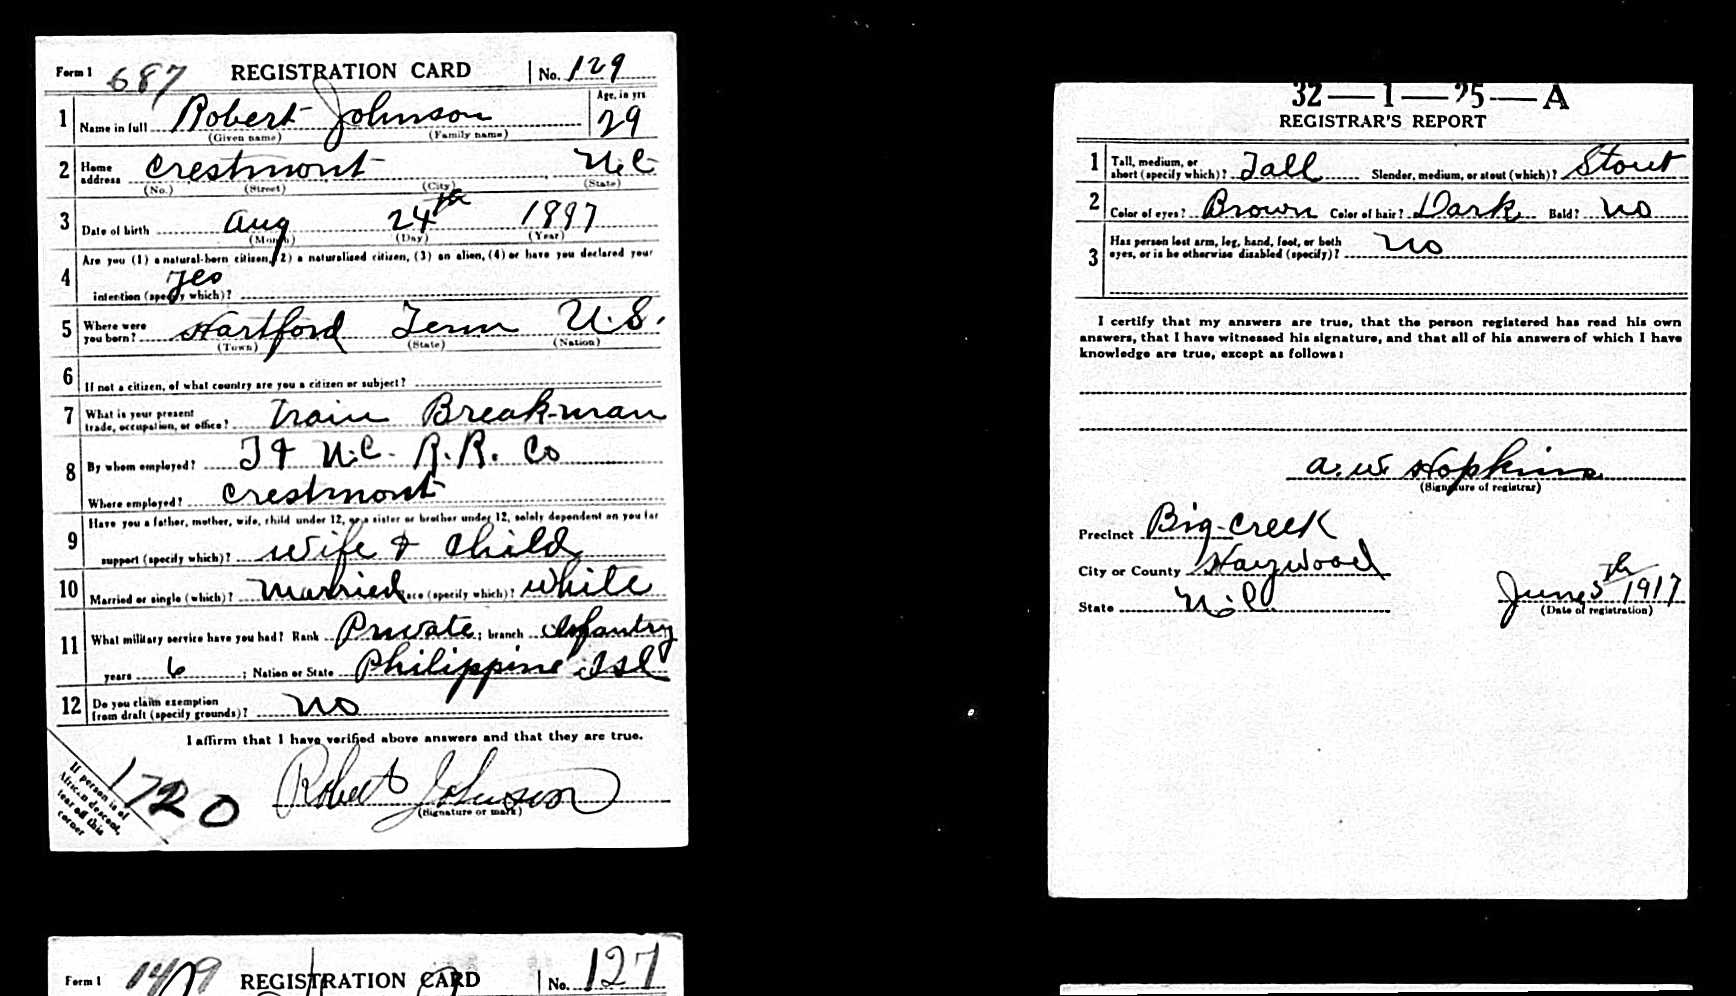 Form 1 687 REGISTRATION CARD No. 129
1 Name in full Robert Johnson Age, in yrs 29
(Given name) (Family name)
2 Home address Crestmont N.C.
(No.) (Street) (City) (State)
3 Date of birth Aug 24th 1897
(Month) (Day) (Year)
4 Are you (1) a natural-born citizen, (2) a naturalized citizen, (3) an alien, (4) or have you declared your
intention (specify which)? Yes
5 Where were you born? Hartford Tenn U.S.
(Town) (State) (Nation)
6 If not a citizen, of what country are you a citizen or subject?
7 What is your present trade, occupation, or office? Train Break-man
8 By whom employed? T & N.C. R.R. Co
Where employed? Crestmont
9 Have you a father, mother, wife, child under 12, or a sister or brother under 12, solely dependent on you for
support (specify which)? Wife & Child
10 Married or single (which)? Married Race (specify which)? White
11 What military service have you had? Rank Private; branch Infantry
years 6; Nation or State Philippine Isl
12 Do you claim exemption from draft (specify grounds)? No
I affirm that I have verified above answers and that they are true.
Robert Johnson
(Signature or mark)
If person is of African descent, tear off this corner
1720
32—1—25—A
REGISTRAR'S REPORT
1 Tall, medium, or short (specify which)? Tall Slender, medium, or stout (which)? Stout
2 Color of eyes? Brown Color of hair? Dark Bald? No
3 Has person lost arm, leg, hand, foot, or both
eyes, or is he otherwise disabled (specify)? No
I certify that my answers are true, that the person registered has read his own
answers, that I have witnessed his signature, and that all of his answers of which I have
knowledge are true, except as follows:
A. W. Hopkins
(Signature of registrar)
Precinct Big-Creek
City or County Haywood
State N.C. June 5th 1917
(Date of registration)
Form 1 REGISTRATION CARD No. 127